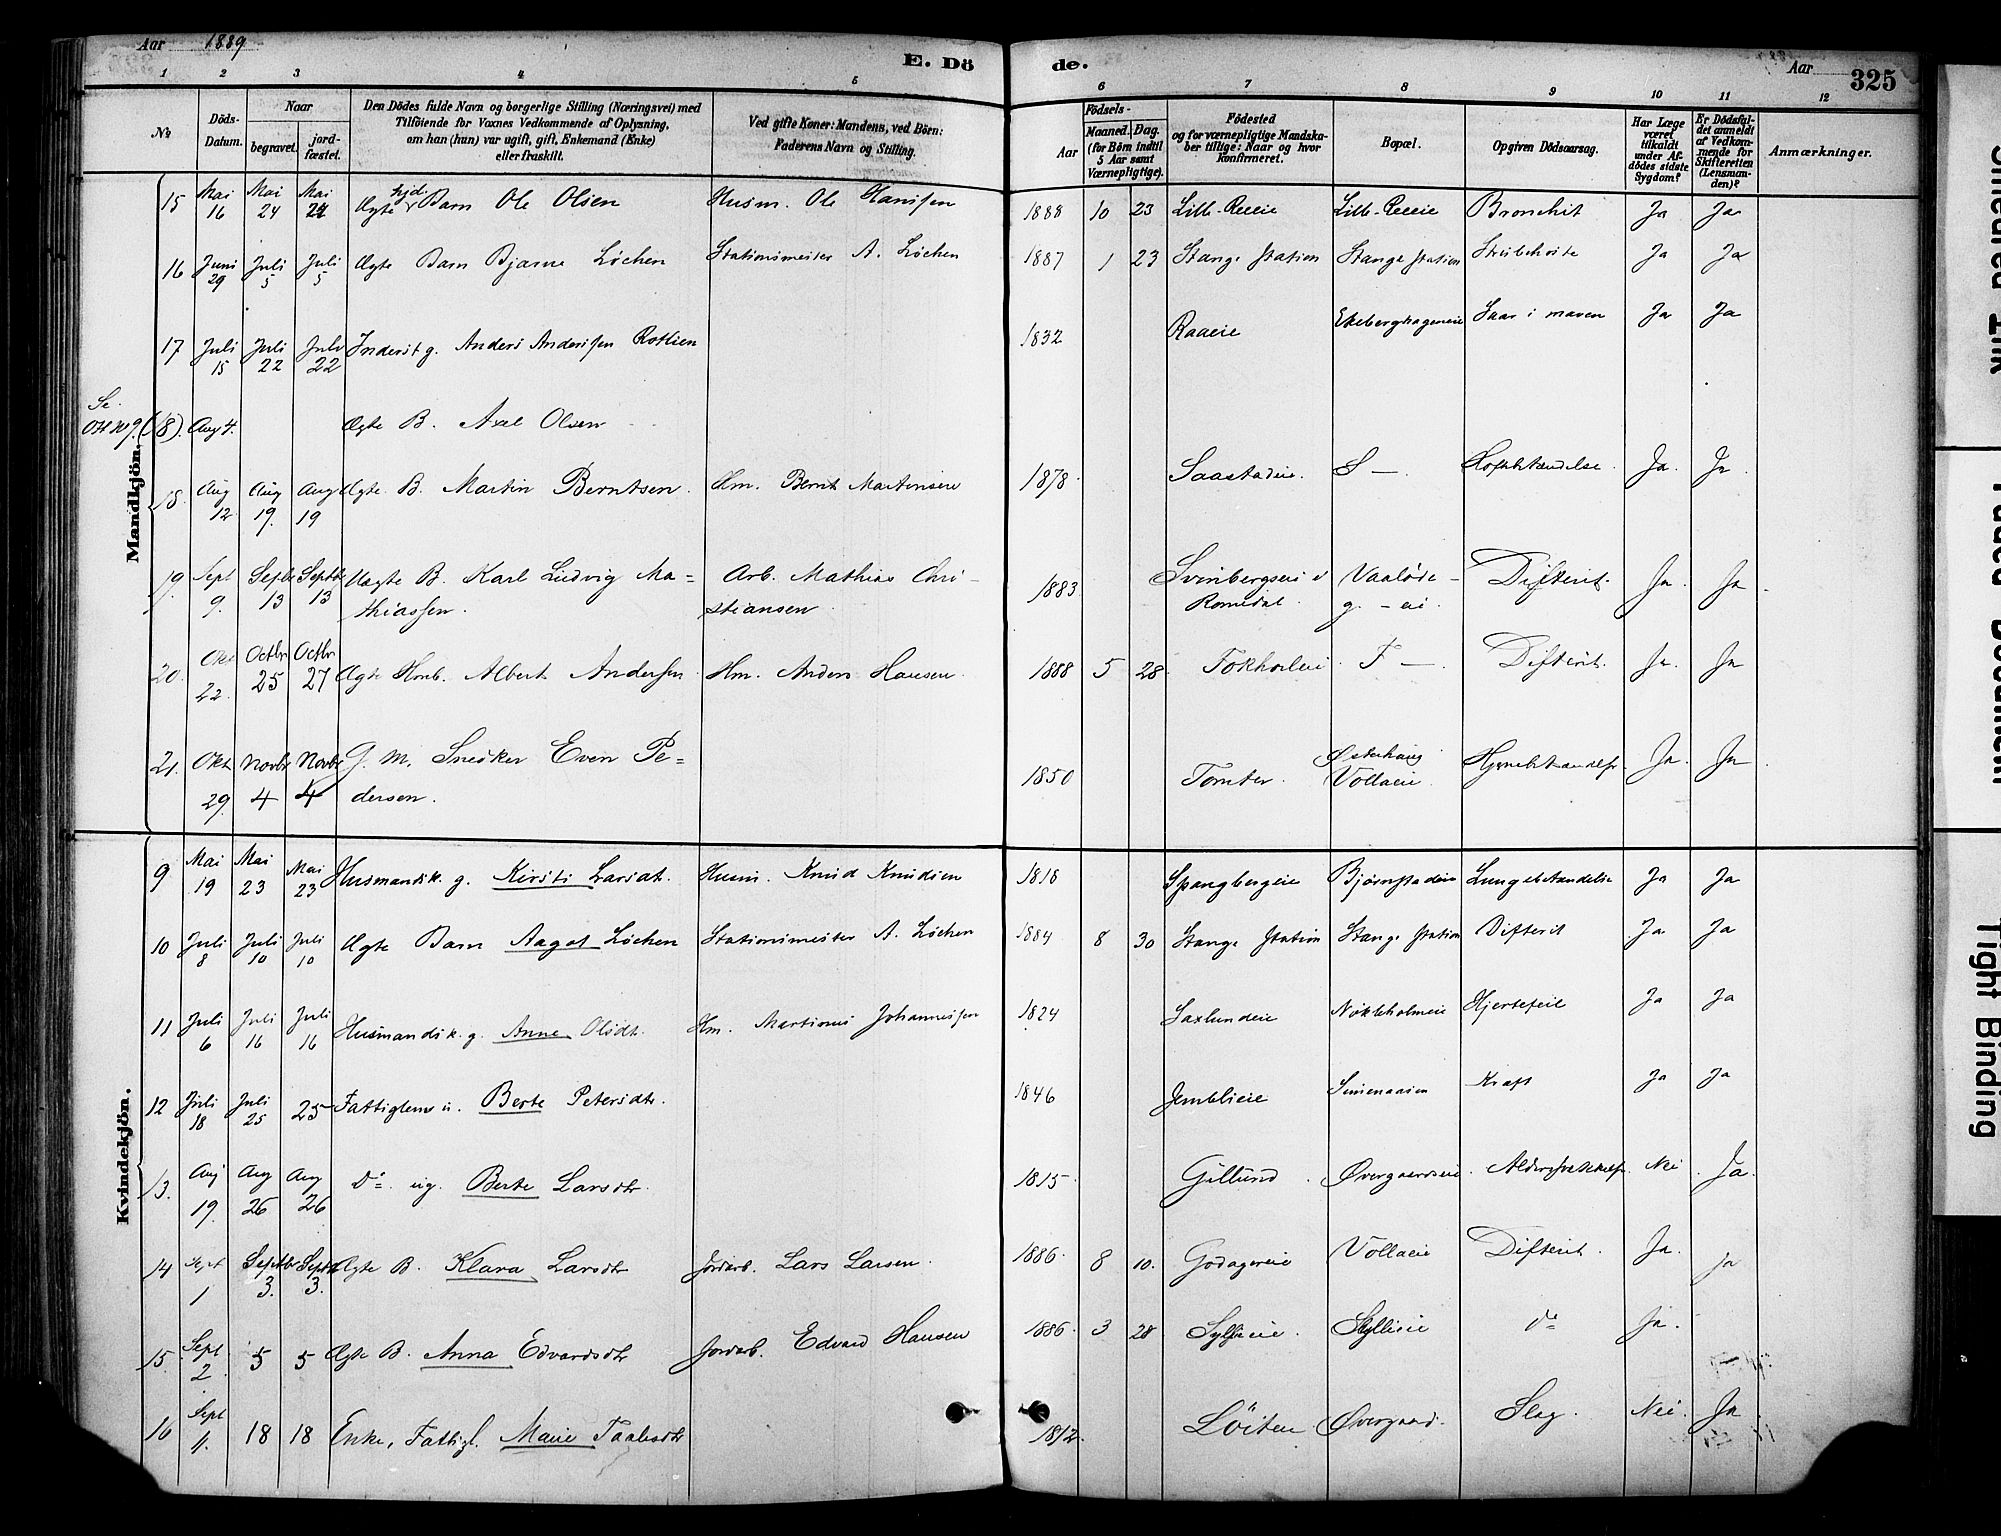 Aar 1889
E. Dö de.
Aar 325
1 2 3 4 5 6 7 8 9 10 11 12
№
Döds-Datum.
Naar begravet. jord-fæstet.
Den Dödes fulde Navn og borgerlige Stilling (Næringsvei) med Tilföiende for Voxnes Vedkommende af Oplysning, om han (hun) var ugift, gift, Enkemand (Enke) eller fraskilt.
Ved gifte Koner: Mandens, ved Börn: Faderens Navn og Stilling.
Födsels-
Aar
Maaned. Dag.
(for Börn indtil 5 Aar samt Værnepligtige).
Födested og for værnepligtige Mandskaber tillige: Naar og hvor konfirmeret.
Bopæl.
Opgiven Dödsaarsag.
Har Læge været tilkaldt under Afdödes sidste Sygdom?
Er Dödsfaldet anmeldt af Vedkommende for Skifteretten (Lensmanden)?
Anmærkninger.
Mandkjön.
15 Mai 16 Mai 24 Mai 24 Ægte hjd. Barn Ole Olsen Husm. Ole Hanssen 1888 10 23 Lille-Reeeie Lille-Reeeie Bronchit Ja Ja
16 Juni 29 Juli 5 Juli 5 Ægte Barn Bjarne Løchen Stationsmester A. Løchen 1887 1 23 Stange Station Stange Station Strubehoste Ja Ja
17 Juli 15 Juli 22 Juli 22 Inderst g. Anders Anderssen Rotlien 1832 Raaeie Ekeberghageneie Saar i maven Ja Ja
Se (18). Aug 4. Ægte B. Axel Olsen
18. Aug 12 Aug 19. Aug 19 Ægte B. Martin Berntsen. Hm. Bernt Martinsen 1878 Saastadeie. S — Ja. Ja.
19. Sept 9. Septbr 13 Septbr 13 Uægte B. Karl Ludvig Ma=
thiassen. Arb. Mathias Chri-
stiansen 1883 Svinbergseie i
Romedal. Vaaløde-
g. - eie. Difterit. Ja. Ja
20. Okt 22. Octbr 25 Octbr 27 Ægte Hmb. Albert Andersen. Hm. Anders Hansen. 1888 5 28 F — . Difterit. Ja. Ja
21. Okt 29. Novbr 4 Novbr 4 G. M. Snedker Even Pe=
dersen. 1850 Tomter. Østerhaug
Vollaeie Ja. Ja
Kvindekjön.
9 Mai 19 Mai 23 Mai 23 Husmandsk. g. Kirsti Larsdt. Husm. Knud Knudsen 1818 Spangbergeie Bjørnstadeie Lungebetændelse Ja Ja
10 Juli 8 Juli 10 Juli 10 Ægte Barn Aagot Løchen Stationsmester A. Løchen 1884 8 30 Stange Station Stange Station Difterit Ja Ja
11 Juli 6 Juli 16 Juli 16 Husmandsk. g. Anne Olsdt. Hm. Martinus Johannessen 1824 Saxlundeie Nøkleholmeie Hjertefeil Ja Ja
12 Juli 18 Juli 25 25 Fattiglem u. Berte Petersdtr. 1846 Jemblieie Kræft Ja Ja
13. Aug 19. Aug 26 Aug 26 Do. ug. Berte Larsdtr. 1815 Gillund Øvergaardseie. Nei. Ja.
14 Sept 1 Septbr 3. Septbr 3. Ægte B. Klara Larsdtr Jordarb. Lars Larsen. 1886. 8 10. Godagereie Vollaeie Difterit. Ja. ja
15. Sept 2. 5 5 Ægte B. Anna Edvardsdtr Jordarb. Edvard Hansen 1886. 3 28 Skyllieie Do Ja.
16 Sept 11. 18 18 Enke, Fattigl. Marie Taalesdtr 1812. Løiten Øvergaard. Slag. Nei. Ja
Smeared Ink
Faded Document
Tight Binding